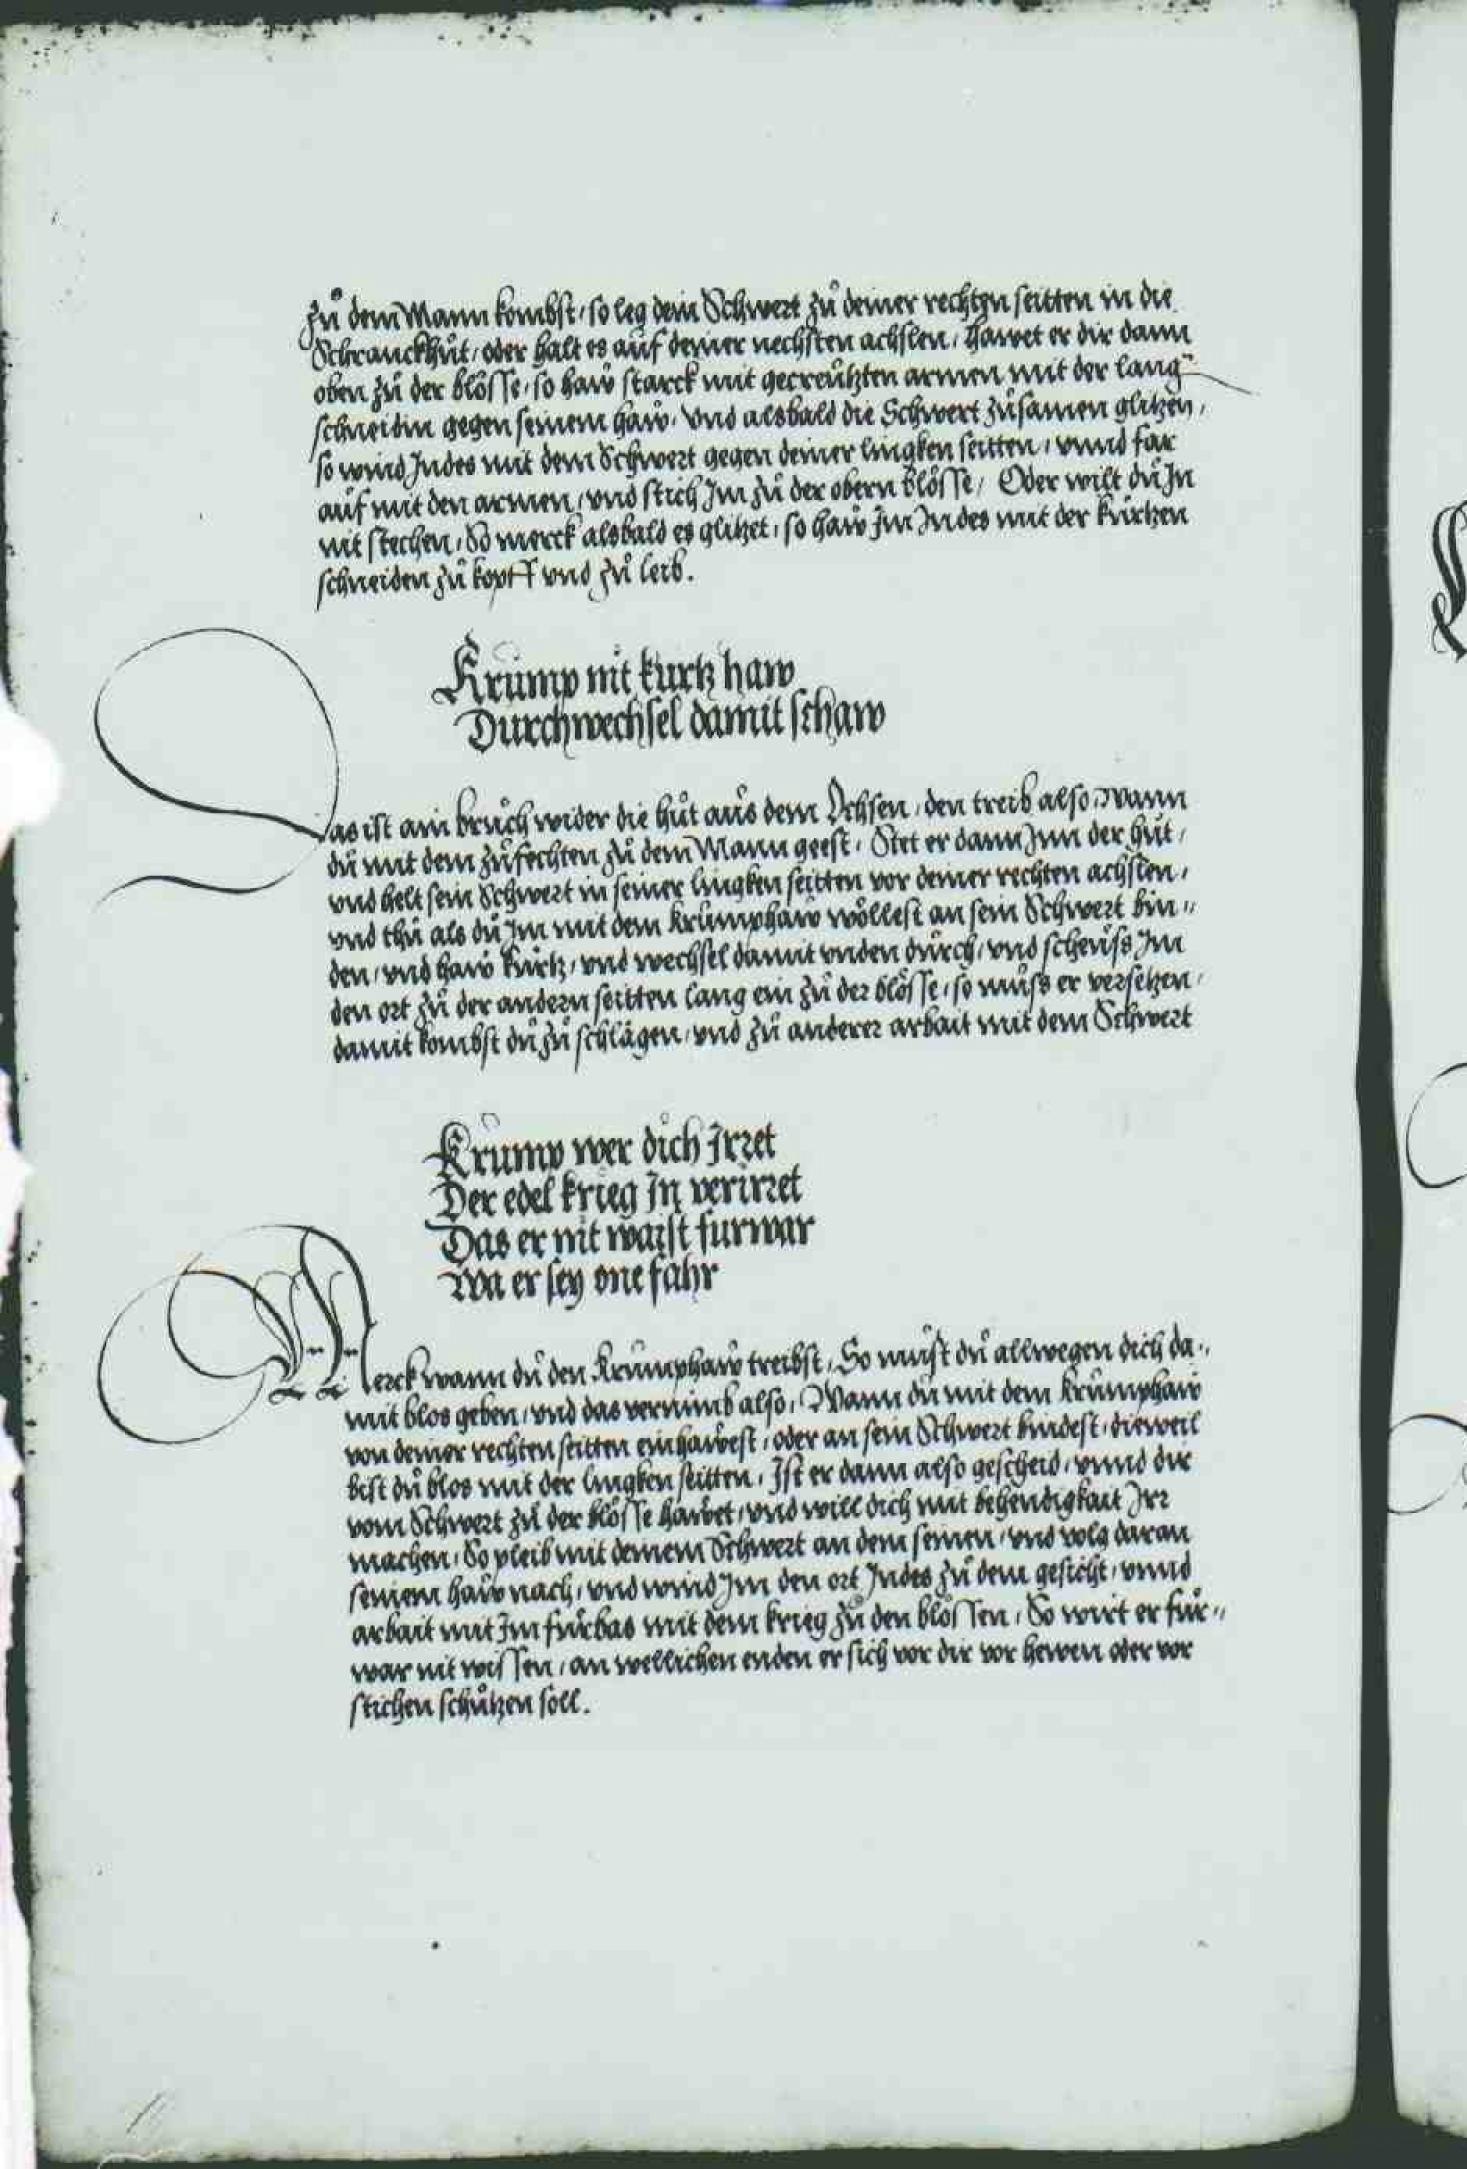 zů dem Mann kombst, so leg dein Schwert zů deiner rechten seitten in die
Schranckhůt, oder halt es auf deiner nechsten achslen, Hawet er dir dann
oben zů der blösse, so haw starck mit gecreützten armen mit der lang
schneidin gegen seinem haw, Vnd alsbald die Schwert zůsamen glitzen,
so wind Indes mit dem Schwert gegen deiner lingken seitten, vnnd far
auf mit den armen, vnd stich Im zů der obern blösse, Oder wilt dů In
nit stechen, So merck alsbald es glitzet, so haw Im Indes mit der kurtzen
schneiden zů kopff vnd zů leib.
Krump nit kurtz haw
Durchwechsel damit schaw
Das ist ain bruch wider die hůt aus dem Ochsen, den treib also, Wann
dů mit dem zůfechten zů dem Mann geest, Stet er dann Inn der hůt,
vnd helt sein Schwert in seiner lingken seitten vor deiner rechten achslen,
vnd thů als dů Im mit dem Krumphaw wöllest an sein Schwert bin„
den, vnd haw kurtz, vnd wechsel damit vnden durch, vnd scheüss Im
den ort zů der andern seitten lang ein zů der blösse, so můss er versetzen,
damit kombst dů zů schlägen, vnd zů anderer arbait mit dem Schwert
Krump wer dich Irret
Der edel krieg In verirret
Das er nit waist furwar
Wa er sey one fahr
Merck wann dů den Krumphaw treibst, So můst dů allwegen dich da„
mit blos geben, vnd das vernimb also, Wann du mit dem Krumphaw
von deiner rechten seitten einhawest, oder an sein Schwert bindest, dieweil
bist dů blos mit der lingken seitten, Ist er dann also gescheid, vnnd dir
vom Schwert zů der blösse hawet, vnd will dich mit behendigkait Irr
machen, So pleib mit deinem Schwert an dem seinen, vnd volg daran
seinem haw nach, vnd wind Im den ort Indes zů dem gesicht, vnnd
arbait mit Im fürbas mit dem krieg zů den blössen, So wirt er für„
war nit wissen, an wellichen enden er sich vor dir vor hewen oder vor
stichen schützen soll.